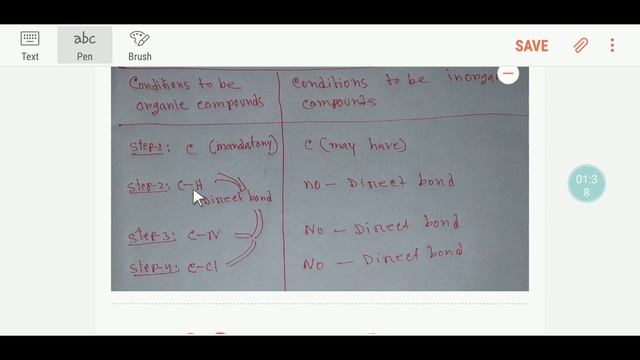 abc
Text
Pen
Brush
SAVE
Conditions to be
organic compounds
Conditions to be inorga
compounds
Step-1: C (mandatory)
C (may have)
Step-2: C-H
Direct bond
no - Direct bond
Step-3: C-N
No - Direct bond
Step-4: C-Cl
No - Direct bond
01:3
8